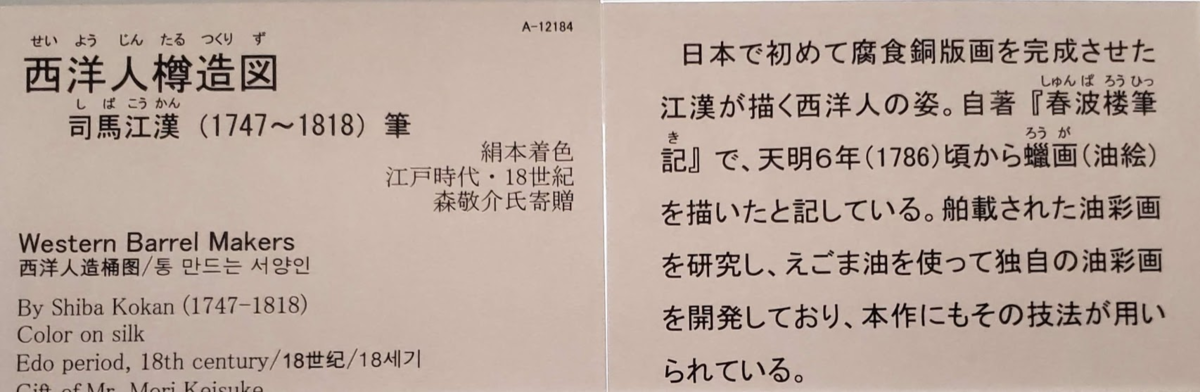 A-12184
せい よう じん たる つくり ず
西洋人樽造図
し ば こう かん
司馬江漢（1747〜1818）筆
絹本着色
江戸時代・18世紀
森敬介氏寄贈
Western Barrel Makers
西洋人造桶图/통 만드는 서양인
By Shiba Kokan (1747-1818)
Color on silk
Edo period, 18th century/18世纪/18세기
Gift of Mr. Mori Keisuke
日本で初めて腐食銅版画を完成させた
しゅん ぱ ろう ひっ
江漢が描く西洋人の姿。自著『春波楼筆
き ろう が
記』で、天明6年(1786)頃から蠟画(油絵)
を描いたと記している。舶載された油彩画
を研究し、えごま油を使って独自の油彩画
を開発しており、本作にもその技法が用い
られている。